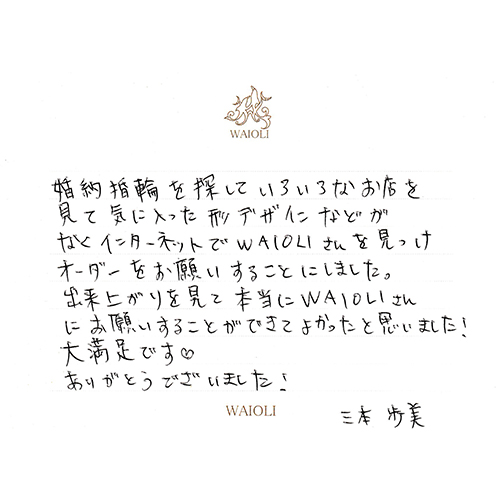 WAIOLI
婚約指輪を探していろいろなお店を
見て気に入った形デザインなどが
なくインターネットでWAIOLIさんを見つけ
オーダーをお願いすることにしました。
出来上がりを見て本当にWAIOLIさん
にお願いすることができてよかったと思いました!
大満足です♡
ありがとうございました!
WAIOLI
三本 歩美